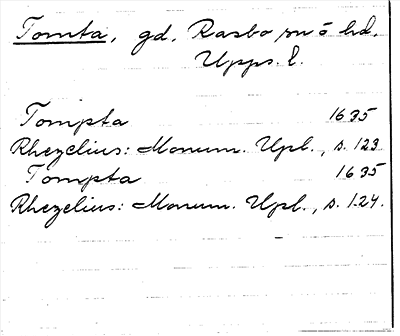 Tomta, gd, Rasbo sn o hd,
Upps. l.
Tompta 1635
Rhezelius: Monum. Upl., s. 123
Tompta 1635
Rhezelius: Monum. Upl., s. 124.